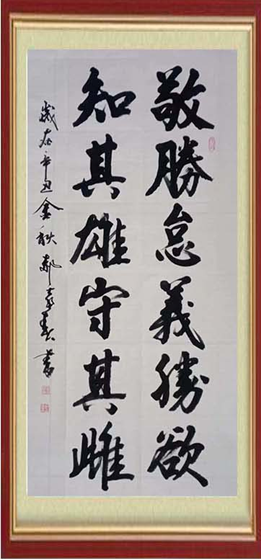 敬勝怠義勝欲
知其雄守其雌
歲在辛丑金秋郝 書